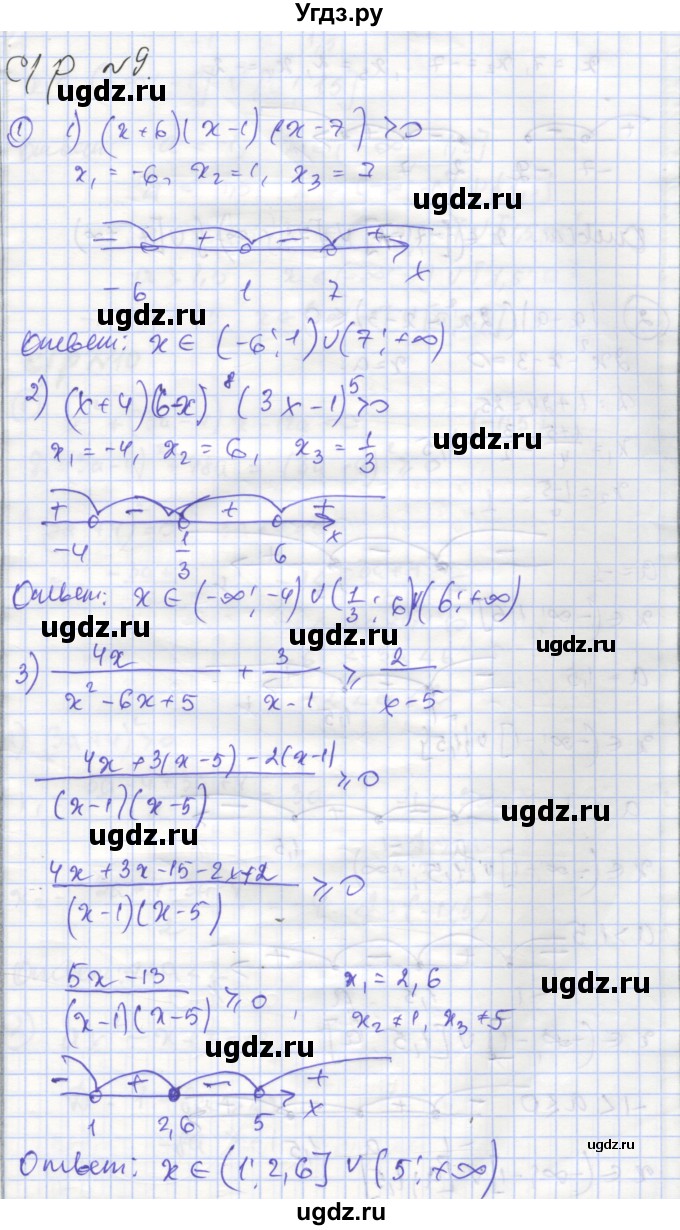 Угдз.ру
С/р №9.
ugdz.ru
① 1) (x+6)(x-1)(x-7)>0
x₁=-6, x₂=1, x₃=7
ugdz.ru
− + − + x
-6 1 7
ugdz.ru
Ответ: x∈(-6;1)∪(7;+∞)
2) (x+4)(6-x)⁸(3x-1)⁵>0
x₁=-4, x₂=6, x₃=1/3
ugdz.ru
+ − + + x
-4 1/3 6
Ответ: x∈(-∞;-4)∪(1/3;6)∪(6;+∞)
ugdz.ru
ugdz.ru
3) 4x/(x²-6x+5) + 3/(x-1) ⩾ 2/(x-5)
(4x+3(x-5)-2(x-1))/((x-1)(x-5)) ⩾0
ugdz.ru
ugdz.ru
(4x+3x-15-2x+2)/((x-1)(x-5)) ⩾0
(5x-13)/((x-1)(x-5)) ⩾0, x₁=2,6
ugdz.ru
x₂≠1, x₃≠5
ugdz.ru
− + − + x
1 2,6 5
ugdz.ru
Ответ: x∈(1;2,6]∪(5;+∞)
ugdz.ru